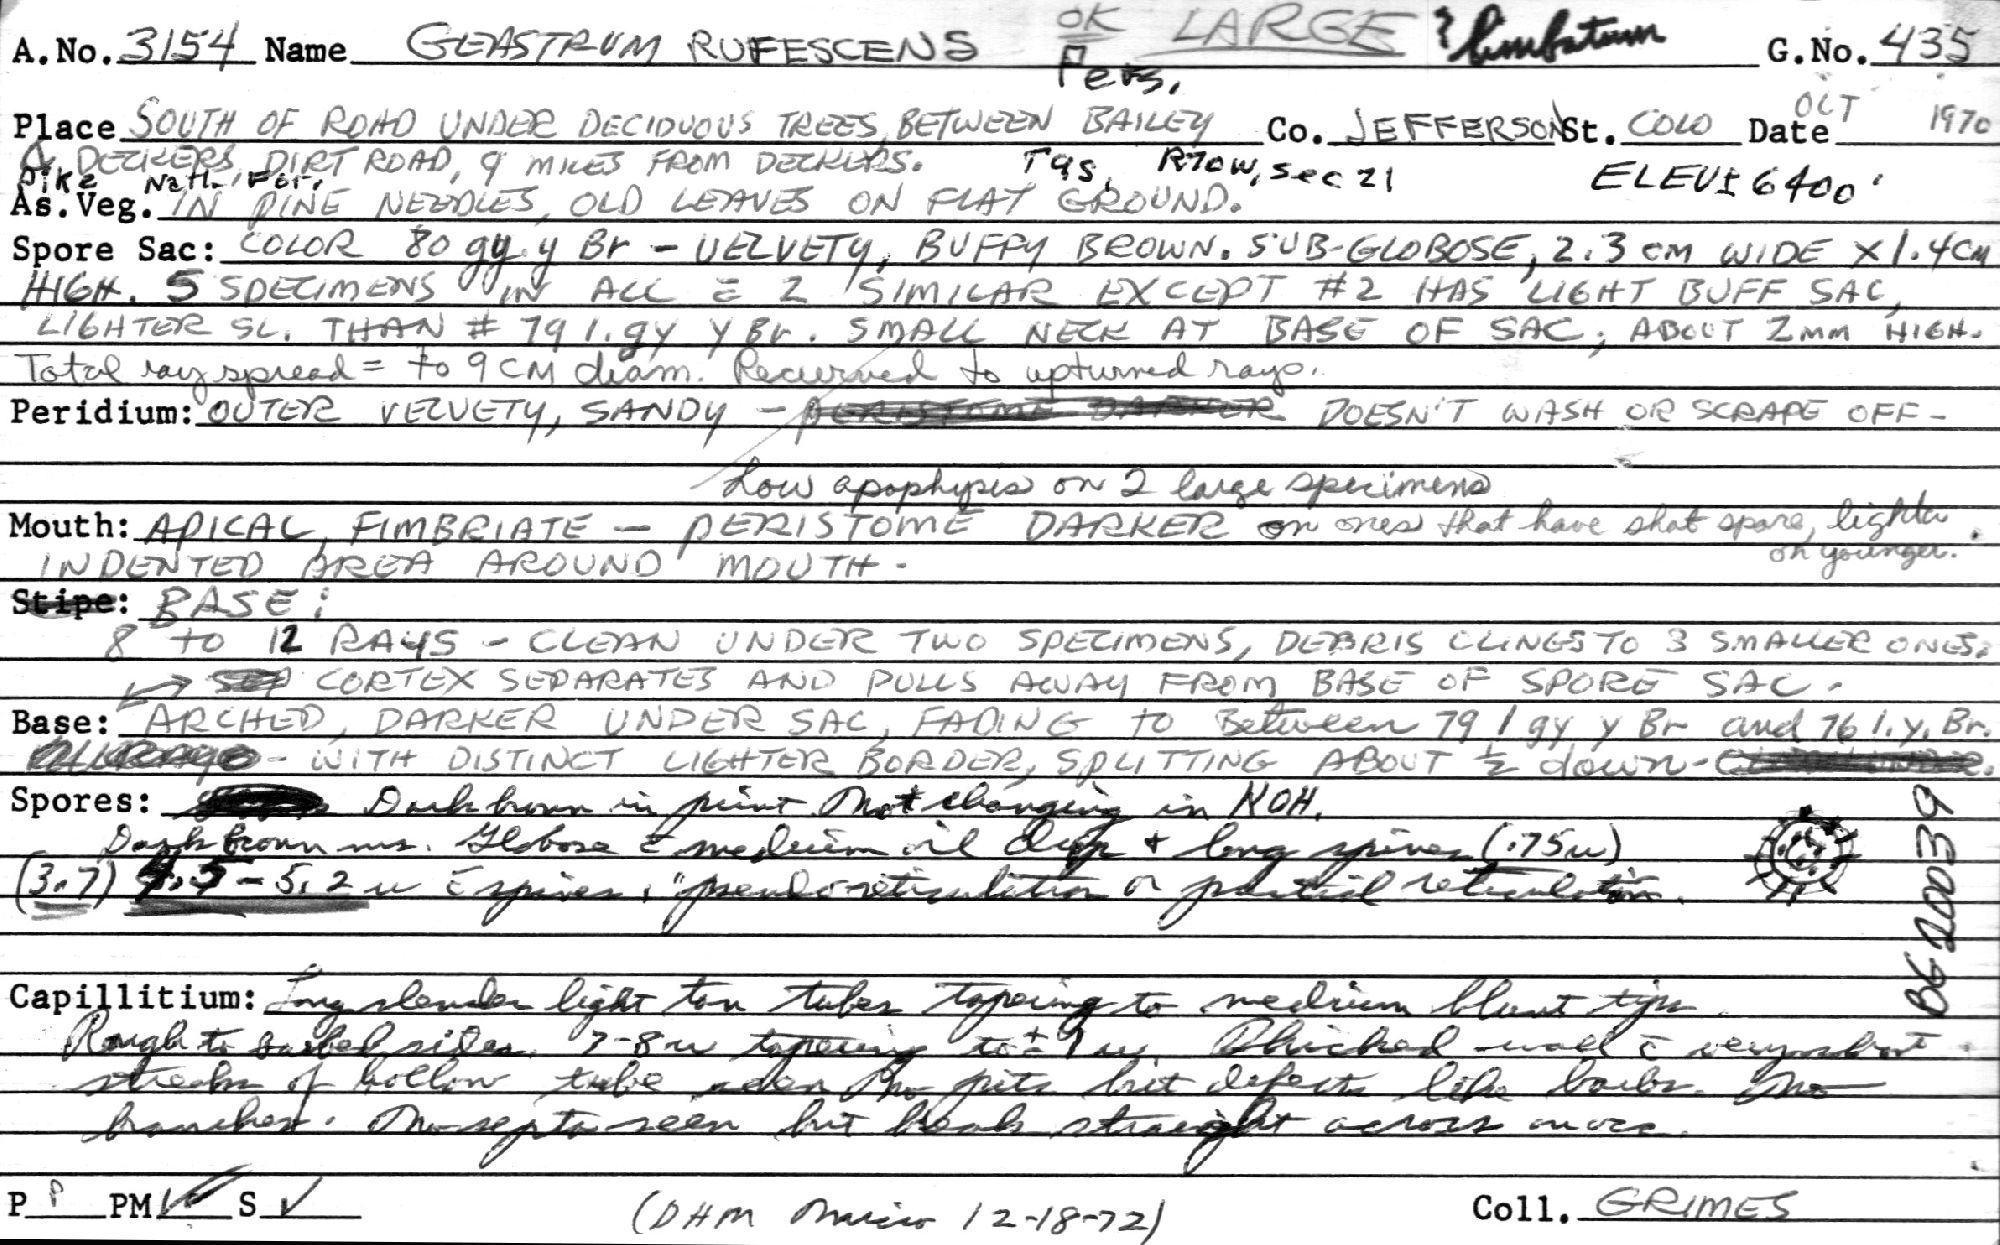 A.No. 3154 Name GEASTRUM RUFESCENS OK Pers. LARGE ? limbatum G.No. 435
Place SOUTH OF ROAD UNDER DECIDUOUS TREES, BETWEEN BAILEY Co. JEFFERSON St. COLO Date OCT 1970
& DECKERS, DIRT ROAD, 9 MILES FROM DECKERS. T9S, R70W, Sec 21 ELEV ± 6400'
Pike Natl. For.
As.Veg. IN PINE NEEDLES, OLD LEAVES ON FLAT GROUND.
Spore Sac: COLOR 80 gy. y Br - VELVETY, BUFFY BROWN. SUB-GLOBOSE, 2.3 cm WIDE X 1.4 CM
HIGH. 5 SPECIMENS IN ALL = 2 SIMILAR EXCEPT #2 HAS LIGHT BUFF SAC,
LIGHTER SL. THAN # 79 l. gy y Br. SMALL NECK AT BASE OF SAC, ABOUT 2mm HIGH.
Total ray spread = to 9 CM diam. Recurved to upturned rays.
Peridium: OUTER VELVETY, SANDY - PERISTOME DARKER DOESN'T WASH OR SCRAPE OFF -
Low apophysis on 2 large specimens
Mouth: APICAL, FIMBRIATE - PERISTOME DARKER on ones that have shot spore, lighter on younger.
INDENTED AREA AROUND MOUTH.
Stipe: BASE:
8 to 12 RAYS - CLEAN UNDER TWO SPECIMENS, DEBRIS CLINGS TO 3 SMALLER ONES.
CORTEX SEPARATES AND PULLS AWAY FROM BASE OF SPORE SAC.
Base: ARCHED, DARKER UNDER SAC, FADING to Between 79 l gy y Br and 76 l. y. Br.
- WITH DISTINCT LIGHTER BORDER, SPLITTING ABOUT ½ down -
Spores: Dark brown in print Not changing in KOH.
Dark brown ms. Globose c̄ medium oil drop + long spines (.75u)
(3.7) 4.5 - 5.2 u c̄ spines, "pseudo reticulation or partial reticulation.
B6200039
Capillitium: Long slender light tan tubes tapering to medium blunt tips.
Rough to barbed sides. 7-8u tapering to ± 1 u. Thicked wall c̄ very short
streaks of hollow tube seen No pits but defects like barbs. No
branches. No septa seen but break straight across once.
P P PM ✓ S ✓ (DHM 12-18-72) Coll. GRIMES